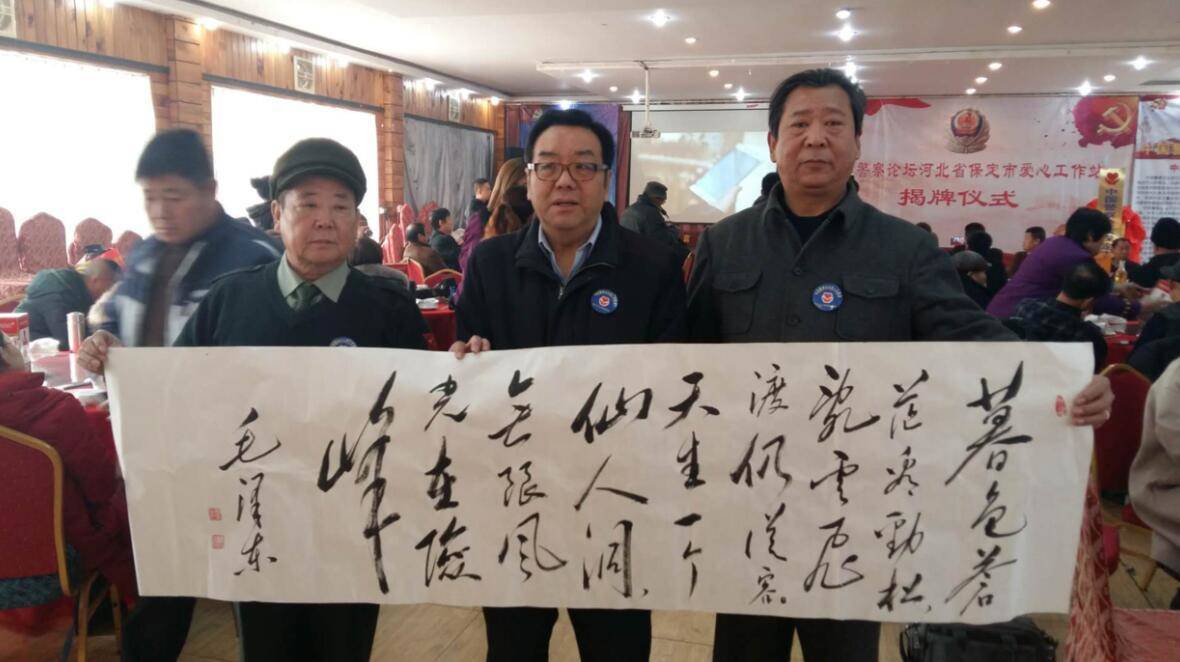 警察论坛河北省保定市爱心工作站
揭牌仪式
暮色苍
茫看劲松
乱云飞
渡仍从容
天生一个
仙人洞
无限风
光在险
峰
毛泽东